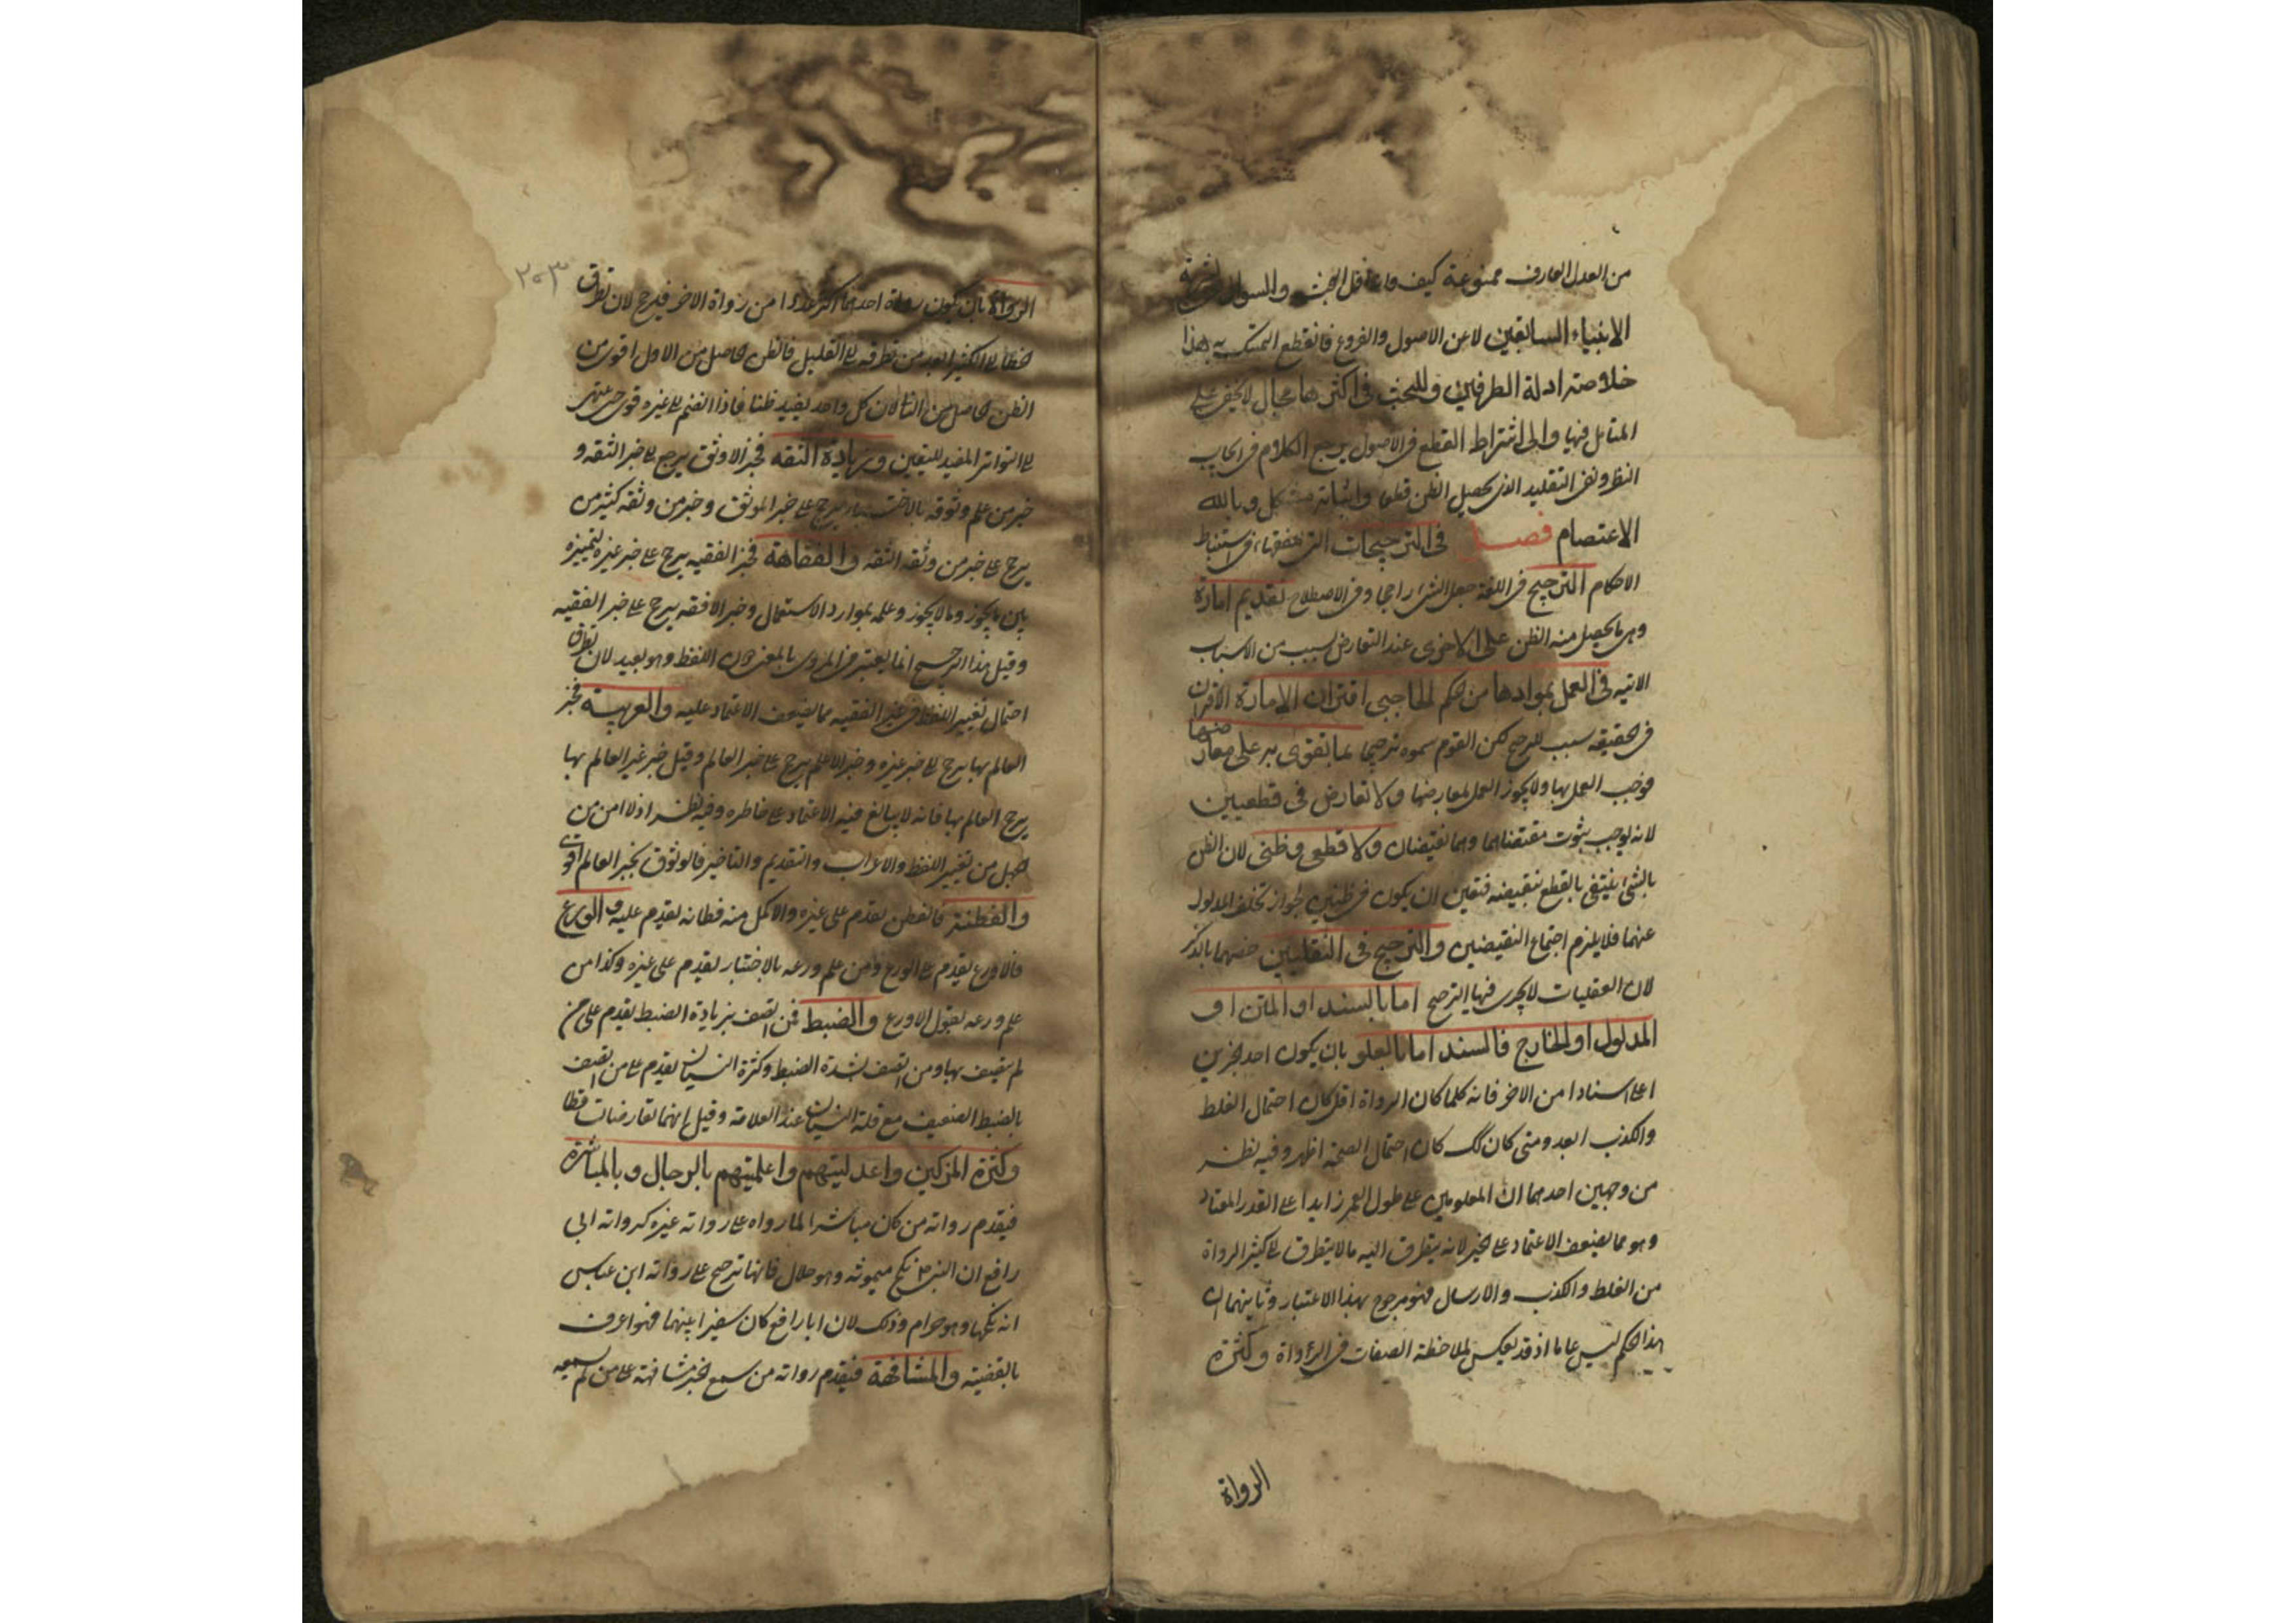 من العدل العارف ممنوعة كيف وما نقل البحث والسوال
الانبياء السابقين لا عن الاصول والفروع فانقطع التمسك به هذا
خلاصة ادلة الطرفين وللبحث في اكثرها مجال لا يخفى على
المتامل فيها والى اشتراط القطع في الاصول يرجع الكلام في ايجاب
النظر ونفى التقليد الذي يحصل الظن قطعا واثباته مشكل وبالله
الاعتصام فصل في الترجيحات التي نعقها في استنباط
الاحكام الترجيح في اللغة جعل الشئ راجحا وفي الاصطلاح تقديم امارة
وهي ما يحصل منه الظن على الاخرى عند التعارض لسبب من الاسباب
الاتيه في العمل بموادها من الحكم الحاجبي اقتران الامارة الاقتران
في الحقيقه سبب للترجيح لكن القوم سموه ترجيحا بما تقوى به على معارضها
فوجب العمل بها ولا يجوز العمل بمعارضها ولا تعارض في قطعيين
لانه يوجب ثبوت مقتضاهما وهما نقيضان ولا قطعي وظني لان الظن
بالشئ ينتفى بالقطع بنقيضه فتعين ان يكون في ظنيين لجواز تخلف المدلول
عنهما فلا يلزم اجتماع النقيضين والترجيح في النقليين خصهما بالذكر
لان العقليات لا يجرى فيها الترجيح اما بالسند او المتن او
المدلول او الخارج فالسند اما بالعلو بان يكون احد الخبرين
اعلى اسنادا من الاخر فانه كلما كان الرواة اقل كان احتمال الغلط
والكذب ابعد ومتى كان كك كان احتمال الصحة اظهر وفيه نظر
من وجهين احدهما ان المعلومين على طول العمر زايدا على القدر المعتاد
وهو مما يضعف الاعتماد على الخبر لانه يتطرق اليه ما لا يتطرق الى كثير الرواة
من الغلط والكذب والارسال فهو مرجوح بهذا الاعتبار وثانيهما ان
هذا الحكم ليس عاما اذ قد يعكس بملاحظة الصفات في الرواة وكثرة
الرواة
٢٠٣
الرواة بان يكون رواة احدهما اكثر عددا من رواة الاخر فيرجح لان تطرق
الخطا الى الكثير ابعد من تطرقه الى القليل فالظن الحاصل من الاول اقوى من
الظن الحاصل من الثانى لان كل واحد يفيد ظنا فاذا انضم الى غيره قوى حتى ينتهى
الى التواتر المفيد لليقين وزيادة الثقه فخبر الاوثق يرجح على خبر الثقه و
خبر من علم وثوقه بالاختبار يرجح على خبر الموثق وخبر من وثقه كثير من
يرجح على خبر من وثقه الثقه والفقاهة فخبر الفقيه يرجح على خبر غيره لتمييزه
بين ما يجوز وما لا يجوز وعلمه بموارد الاستعمال وخبر الافقه يرجح على خبر الفقيه
وقيل هذا الترجيح انما يعتبر في المروى بالمعنى دون اللفظ وهو بعيد لان تطرق
احتمال تغيير اللفظ في غير الفقيه مما يضعف الاعتماد عليه والعربية فخبر
العالم بها يرجح على خبر غيره وخبر الاعلم يرجح على خبر العالم وقيل خبر غير العالم بها
يرجح العالم بها فانه لا يبالغ فيه الاعتماد على خاطره وفيه نظر اذ لا امن من
الجهل من تغيير اللفظ والاعراب والتقديم والتاخير فالوثوق بخبر العالم اقوى
والفطنة فالفطن يقدم على غيره والاكمل منه فطانه يقدم عليه والورع
فالاورع يقدم على الورع ومن علم ورعه بالاختبار يقدم على غيره وكذا من
علم ورعه بقول الاورع والضبط فمن اتصف بزيادة الضبط يقدم على من
لم يتصف بها ومن اتصف بشدة الضبط وكثرة النسيان يقدم على من اتصف
بالضبط الضعيف مع قلة النسيان عند العلامة وقيل انهما تعارضات
وكثرة المزكين واعدليتهم واعلميتهم بالرجال وبالمباشرة
فيقدم رواته من كان مباشرا لما رواه على رواته غيره كرواته ابى
رافع ان النبي نكح ميمونه وهو حلال فانها ترجح على رواته ابن عباس
انه نكحها وهو حرام وذلك لان ابا رافع كان سفيرا بينهما فهو اعرف
بالقضية والمشافهة فيقدم رواته من سمع الخبر مشافهة على من لم يسمعه